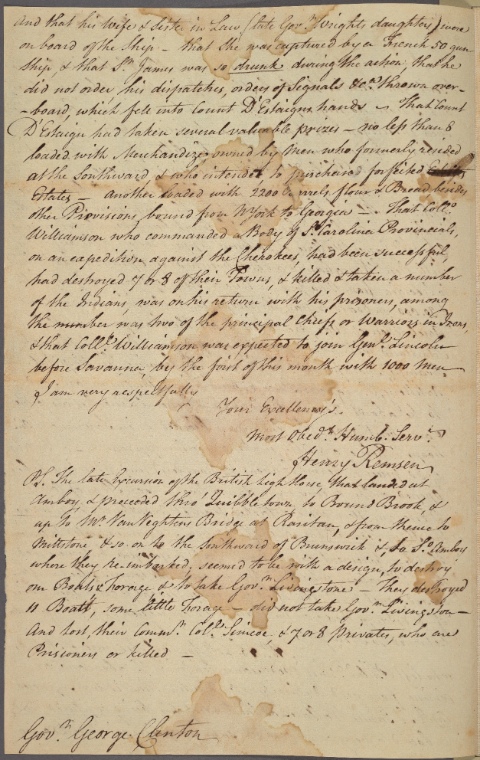 And that his wife & sister in Law (late Gov.r Wrights daughters) were
on board of the Ship – that she was captured by a French 50 gun
ship, & that S.r James was so drunk during the action, that he
did not order his dispatches, orders of Signals &c.a thrown over-
-board, which fell into Count D'Estaings hands – That Count
D'Estaing had taken several valuable prizes – no less than 8
loaded with Merchandize owned by Men who formerly resided
at the Southward & who intended to purchase forfeited
Estates – another loaded with 2200 barrels flour & Bread besides
other Provisions, bound from N York to Georgia – That Coll.o
Williamson who commanded a Body of S.o Carolina Provincials,
on an expedition against the Cherokees, had been successful,
had destroyed 7 or 8 of their Towns, & killed & taken a number
of the Indians was on his return with his prisoners, among
the number was two of the principal Chiefs or Warriors in Irons,
& that Coll.o Williamson was expected to join Gen.l Lincoln
before Savanna by the first of this month with 1000 men
I am very respectfully
Your Excellency's.
Most Obed.t Humb.e Serv.t
Henry Remsen
PS. The late Excursion of the British light Horse that landed at
Amboy, & proceeded thro' Quibbletown to Bound Brook, &
up to Mr Van Veghtens Bridge at Raritan, & from thence to
Millstone &so on to the Southward of Brunswick & to S.o Amboy
where they Reimbarked, seemed to be with a design, to destroy
our Boats & Forage & to take Gov.r Livingstone – They destroyed
11 Boats, some little Forage – did not take Gov.r Livingston –
And lost their Comm.r Col.o Simcoe, & 7 or 8 privates, who are
Prisoners or killed –
Gov.r George Clinton